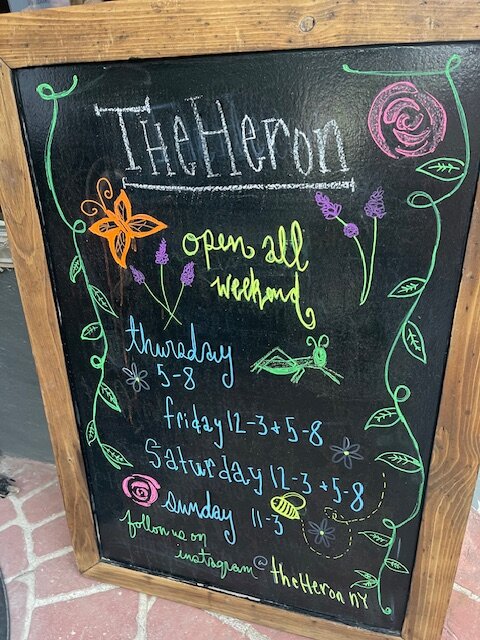 The Heron
open all
weekend
thursday
5-8
friday 12-3 + 5-8
Saturday 12-3 + 5-8
sunday 11-3
follow us on
instagram @theHeronNY